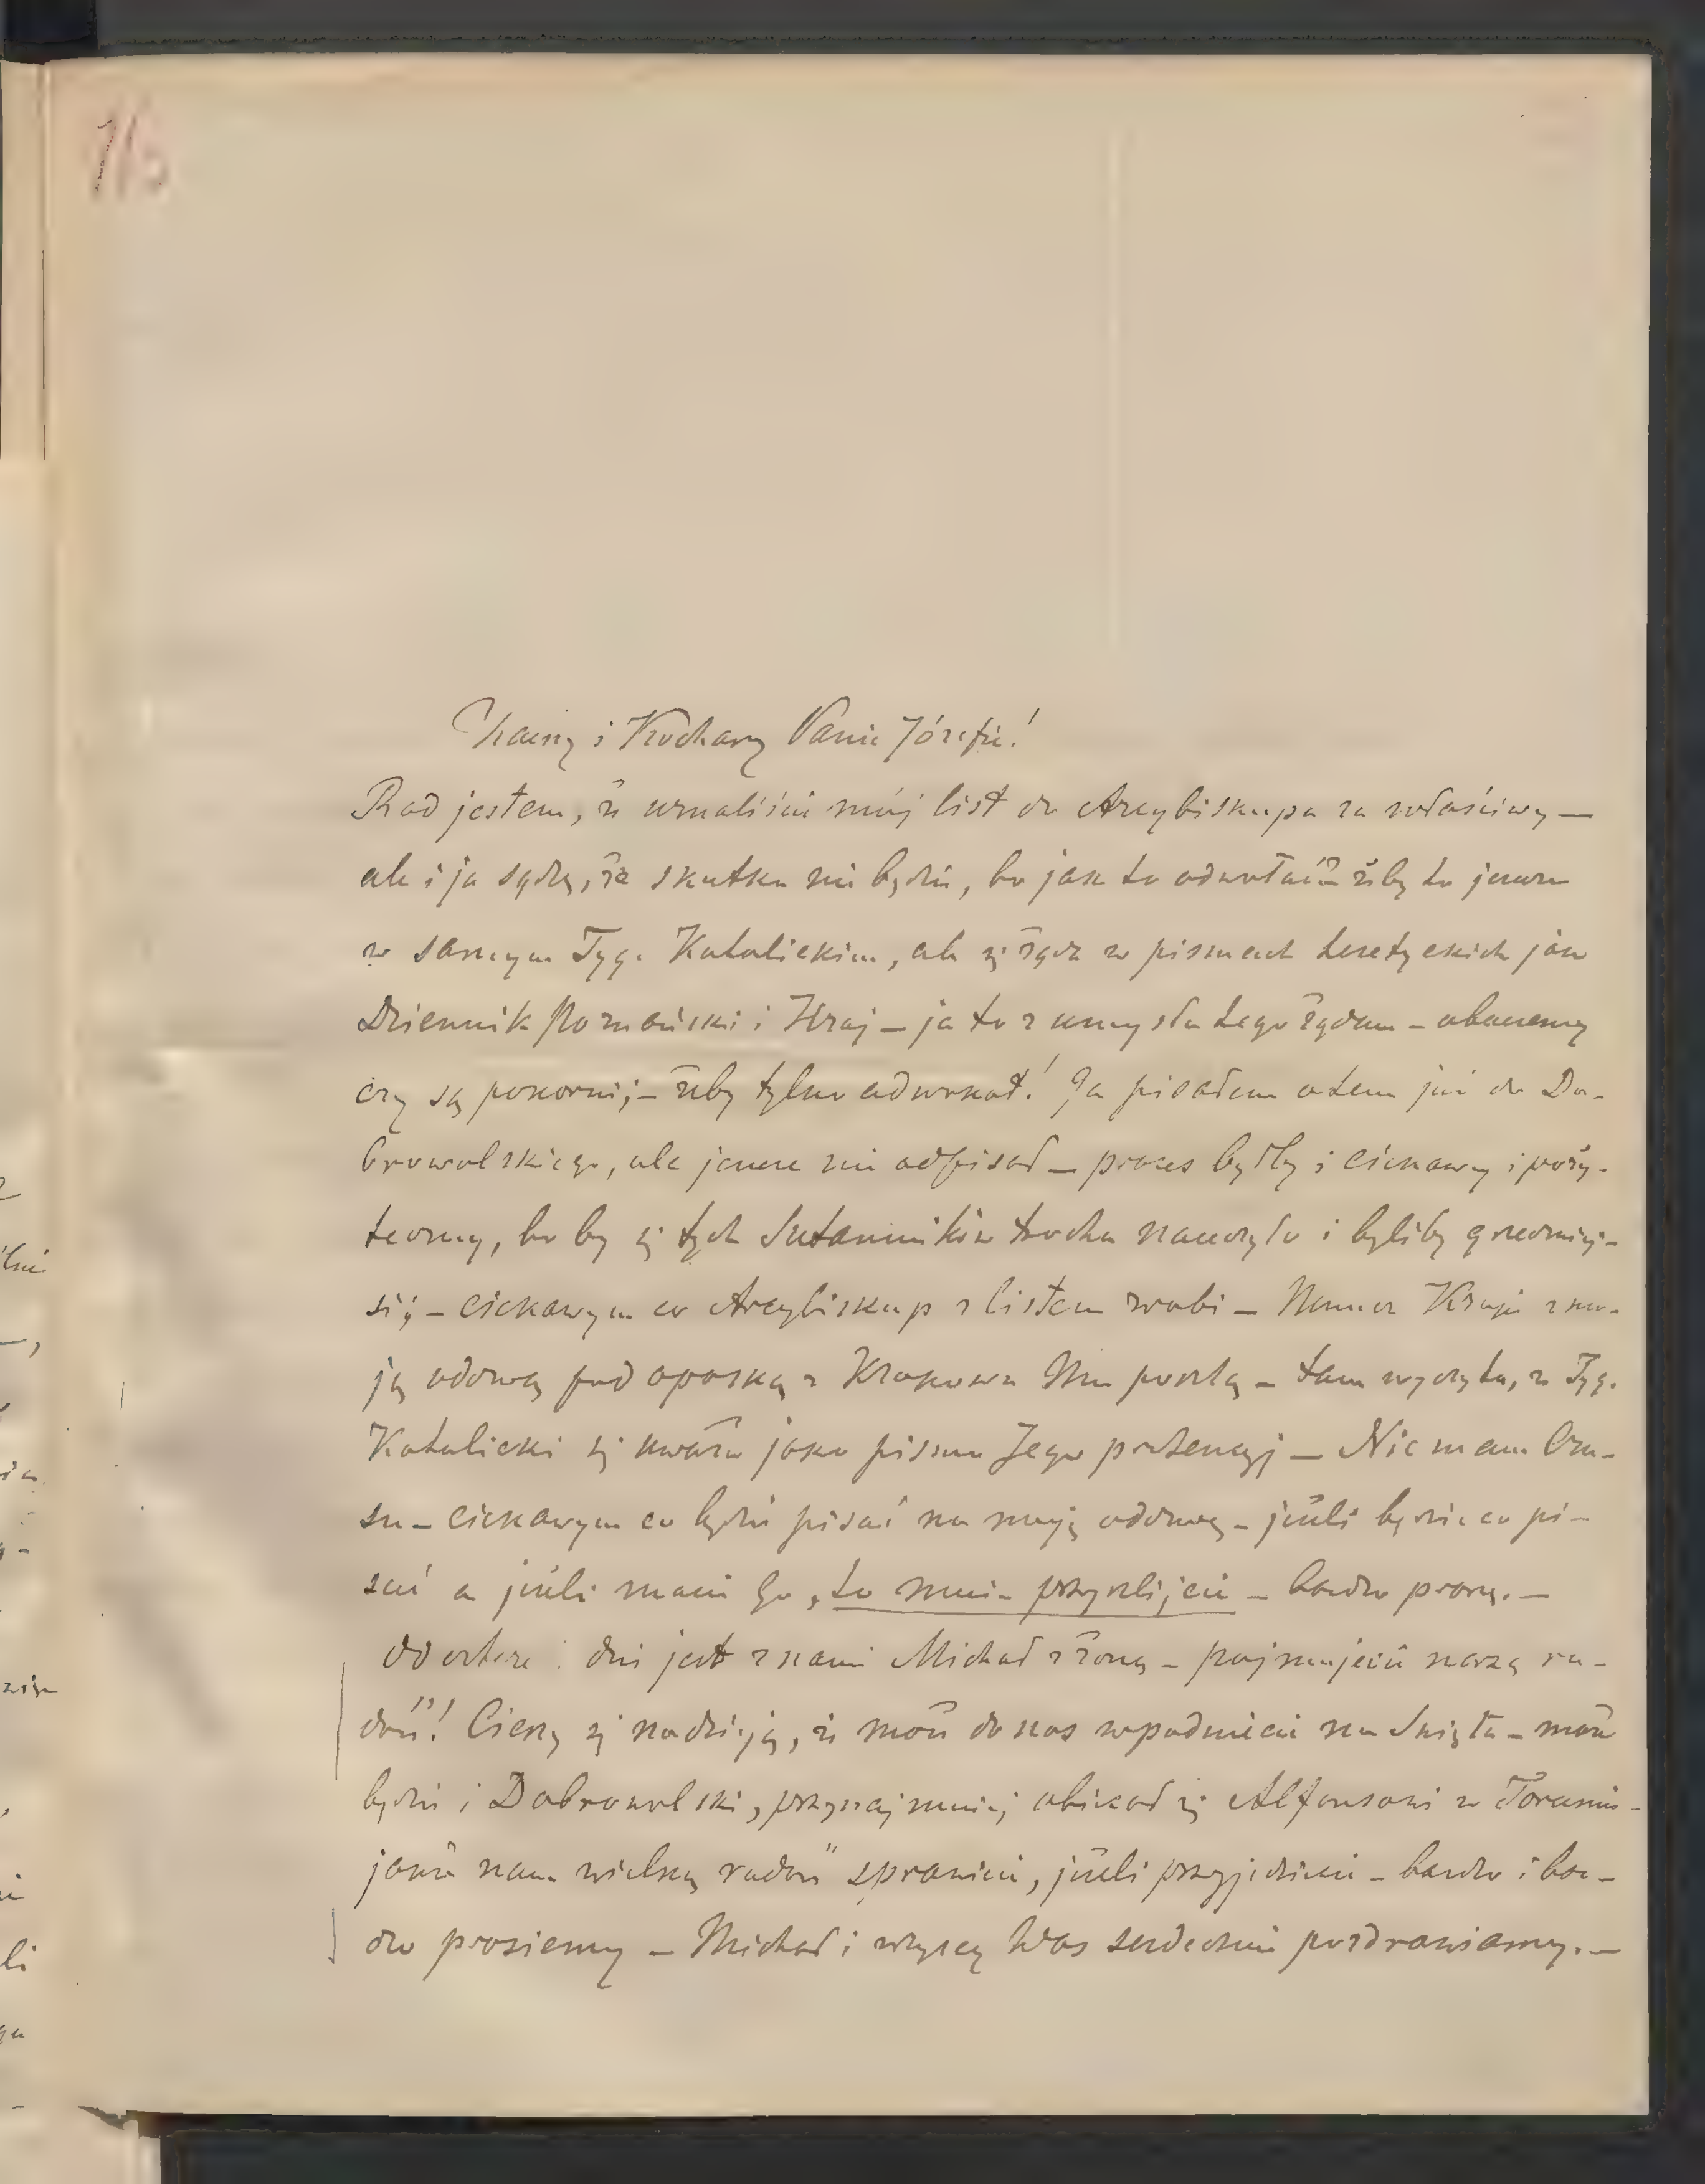 Zacny i Kochany Panie Józefie!
Rad jestem, że uznaliście mój list do Arcybiskupa za właściwy —
ale i ja sądzę, że skutku nie będzie, bo jak to odwołać? żeby to jeszcze
w samym Tyg. Katolickim, ale się żąda w pismach heretyckich jak
Dziennik Poznański i Kraj — ja to z umysłu tego żądam — obaczemy
czy są pokorni; — żeby tylko adwokat! Ja pisałem o tem już do Do-
browolskiego, ale jeszcze nie odpisał — proces byłby i ciekawy i poży-
teczny, bo by się tych Sutanników trochę nauczyło i byliby grzeczniej-
si; — ciekawym co Arcybiskup z listem zrobi — Numer Kraju z mo-
ją odezwą pod opaską z Krakowa Mu poszlą — tam wyczyta, że Tyg.
Katolicki się uważa jako pismo Jego protencyj — Nie mam Cza-
su — ciekawym co będzie pisać na moją odezwę — jeżeli będzie co pi-
sać a jeżeli macie Go, to mnie przyszlijcie — bardzo proszę. —
Od cztere dni jest z nami Michał z żoną — pojmujecie naszą ra-
dość! Cieszę się nadzieją, że może do nas wpadniecie na Święta — może
będzie i Dobrowolski, przynajmniej obiecał się Alfonsowi w Toruniu —
jakże nam wielką radość sprawicie, jeżeli przyjedziecie — bardzo i bar-
dzo prosiemy — Michał i wszyscy Was serdecznie pozdrawiamy. —